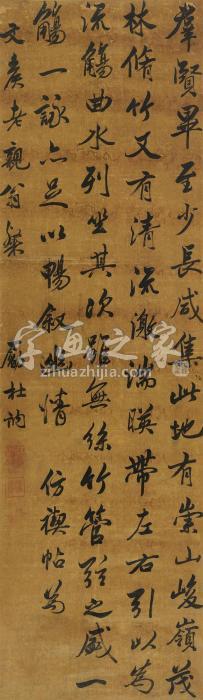 群賢畢至少長咸集此地有崇山峻嶺茂
林脩竹又有清流激湍暎帶左右引以為
流觴曲水列坐其次雖無絲竹管弦之盛一
觴一詠亦足以暢敘幽情 仿禊帖為
文矦老親翁粲 顧杜詢
字画之家
zihuazhijia.com